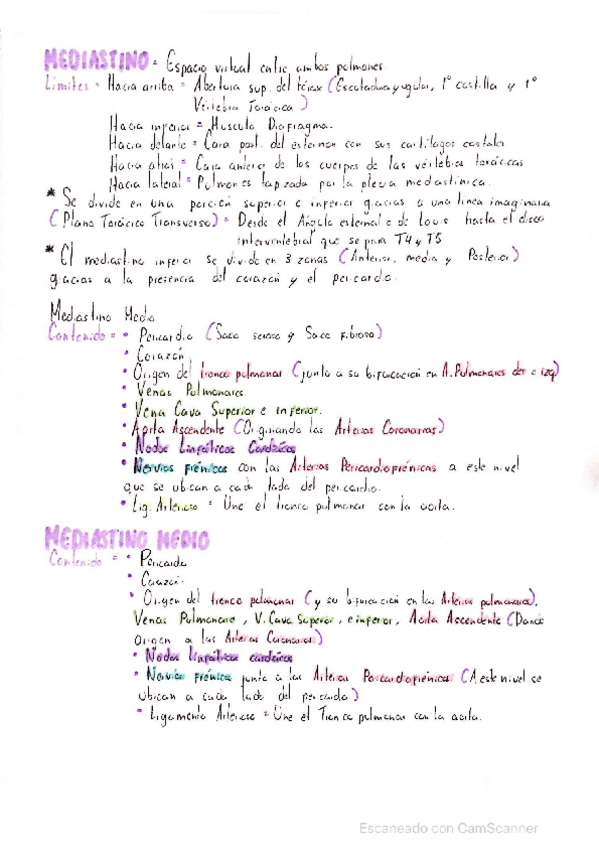 MEDIASTINO = Espacio virtual entre ambos pulmones
Limites = Hacia arriba = Abertura sup. del tórax (Escotadura yugular, 1° costilla y 1°
Vértebra Torácica)
Hacia inferior = Musculo Diafragma.
Hacia delante = Cara post. del esternon con sus cartílagos costales
Hacia atras = Cara anterior de los cuerpos de las vértebras torácicas.
Hacia lateral = Pulmones tapizada por la pleura mediastinica.
* Se divide en una porción superior e inferior gracias a una linea imaginaria
(Plano Torácico Transverso) = Desde el Angulo esternal o de Louis hasta el disco
intervertebral que separa T4 y T5
* El mediastino inferior se divide en 3 zonas (Anterior, media y Posterior)
gracias a la presencia del corazón y el pericardio.
Mediastino Medio
Contenido = • Pericardio (Saco seroso y Saco fibroso)
• Corazón
• Origen del tronco pulmonar (junto a su bifurcación en A. Pulmonares der e izq)
• Venas Pulmonares
• Vena Cava Superior e inferior.
• Aorta Ascendente (Originando las Arterias Coronarias)
• Nodos Linfáticos Cardíacos
• Nervios frénicos con las Arterias Pericardiofrénicas a este nivel
que se ubican a cada lado del pericardio.
• Lig. Arterioso = Une el tronco pulmonar con la aorta.
MEDIASTINO MEDIO
Contenido = • Pericardio
• Corazón
• Origen del tronco pulmonar (y su bifurcación en las Arterias pulmonares),
Venas Pulmonares, V. Cava Superior, e inferior, Aorta Ascendente (Dando
origen a las Arterias Coronarias)
• Nodos linfáticos cardíacos
• Nervios frénicos junto a las Arterias Pericardiofrénicas (A este nivel se
ubican a cada lado del pericardio)
• Ligamento Arterioso = Une el Tronco pulmonar con la aorta.
Escaneado con CamScanner